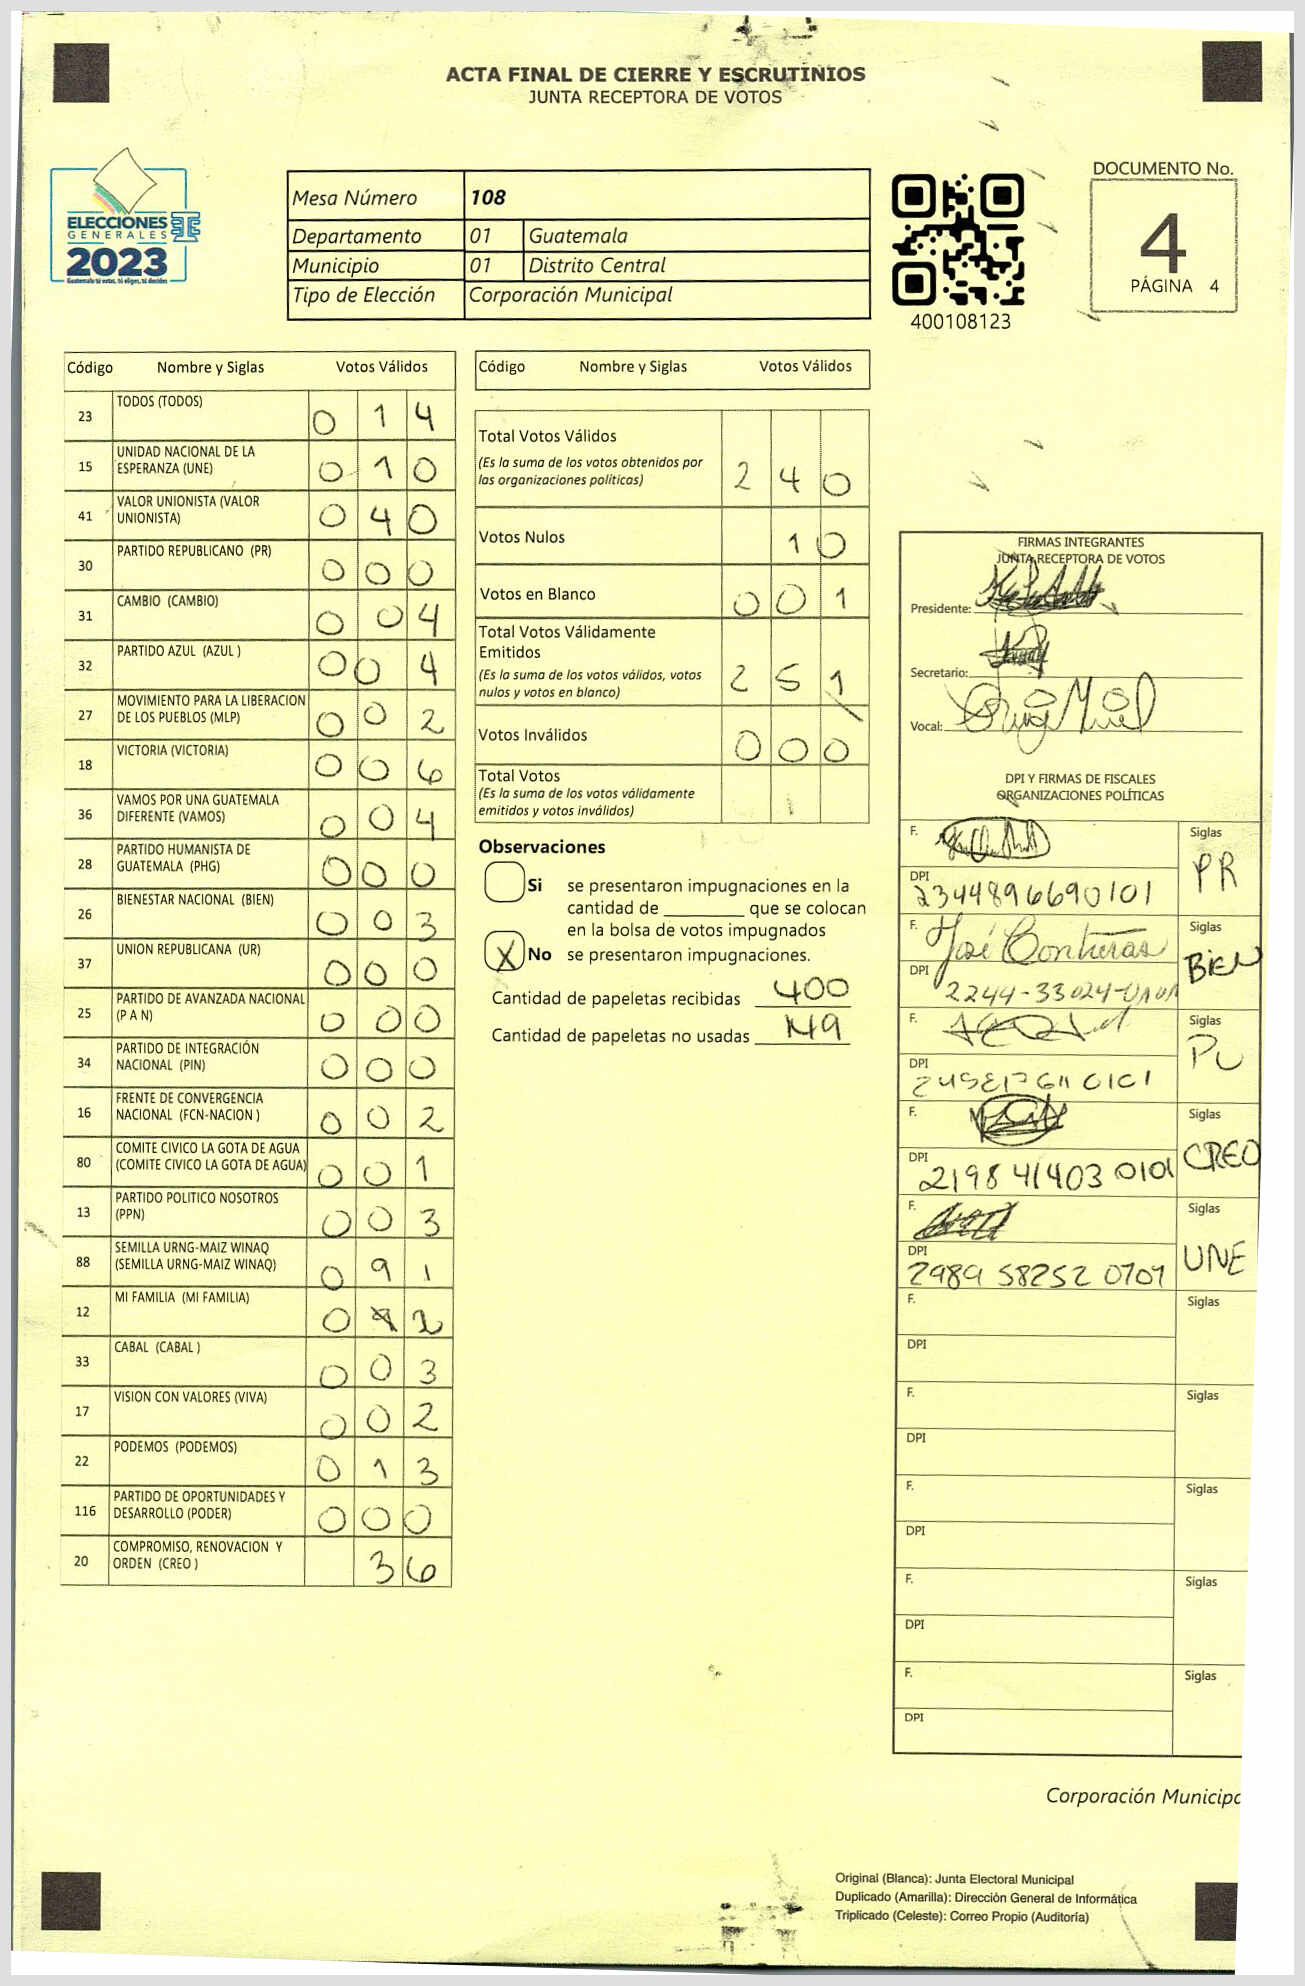 ACTA FINAL DE CIERRE Y ESCRUTINIOS
JUNTA RECEPTORA DE VOTOS
ELECCIONES
GENERALES
2023
Guatemala tú votas, tú eliges, tú decides
Mesa Número 108
Departamento 01 Guatemala
Municipio 01 Distrito Central
Tipo de Elección Corporación Municipal
400108123
DOCUMENTO No.
4
PÁGINA 4
Código Nombre y Siglas Votos Válidos
23 TODOS (TODOS) 0 1 4
15 UNIDAD NACIONAL DE LA ESPERANZA (UNE) 0 1 0
41 VALOR UNIONISTA (VALOR UNIONISTA) 0 4 0
30 PARTIDO REPUBLICANO (PR) 0 0 0
31 CAMBIO (CAMBIO) 0 0 4
32 PARTIDO AZUL (AZUL ) 0 0 4
27 MOVIMIENTO PARA LA LIBERACION DE LOS PUEBLOS (MLP) 0 0 2
18 VICTORIA (VICTORIA) 0 0 6
36 VAMOS POR UNA GUATEMALA DIFERENTE (VAMOS) 0 0 4
28 PARTIDO HUMANISTA DE GUATEMALA (PHG) 0 0 0
26 BIENESTAR NACIONAL (BIEN) 0 0 3
37 UNION REPUBLICANA (UR) 0 0 0
25 PARTIDO DE AVANZADA NACIONAL (P A N) 0 0 0
34 PARTIDO DE INTEGRACIÓN NACIONAL (PIN) 0 0 0
16 FRENTE DE CONVERGENCIA NACIONAL (FCN-NACION ) 0 0 2
80 COMITE CIVICO LA GOTA DE AGUA (COMITE CIVICO LA GOTA DE AGUA) 0 0 1
13 PARTIDO POLITICO NOSOTROS (PPN) 0 0 3
88 SEMILLA URNG-MAIZ WINAQ (SEMILLA URNG-MAIZ WINAQ) 0 9 1
12 MI FAMILIA (MI FAMILIA) 0
33 CABAL (CABAL ) 0 0 3
17 VISION CON VALORES (VIVA) 0 0 2
22 PODEMOS (PODEMOS) 0 1 3
116 PARTIDO DE OPORTUNIDADES Y DESARROLLO (PODER) 0 0 0
20 COMPROMISO, RENOVACION Y ORDEN (CREO ) 3 6
Código Nombre y Siglas Votos Válidos
Total Votos Válidos 2 4 0
(Es la suma de los votos obtenidos por
las organizaciones políticas)
Votos Nulos 1 0
Votos en Blanco 0 0 1
Total Votos Válidamente
Emitidos 2 5 1
(Es la suma de los votos válidos, votos
nulos y votos en blanco)
Votos Inválidos 0 0 0
Total Votos
(Es la suma de los votos válidamente
emitidos y votos inválidos)
Observaciones
Si se presentaron impugnaciones en la
cantidad de ________ que se colocan
en la bolsa de votos impugnados
X No se presentaron impugnaciones.
Cantidad de papeletas recibidas 400
Cantidad de papeletas no usadas 149
FIRMAS INTEGRANTES
JUNTA RECEPTORA DE VOTOS
Presidente:
Secretario:
Vocal:
DPI Y FIRMAS DE FISCALES
ORGANIZACIONES POLÍTICAS
F. Siglas PR
DPI 2344896690101
F. José Contreras Siglas BIEN
DPI 2244-33024-
F. Siglas PU
DPI
F. Siglas CREO
DPI 2198 41403 0101
F. Siglas UNE
DPI 2989 58252 0701
F. Siglas
DPI
F. Siglas
DPI
F. Siglas
DPI
F. Siglas
DPI
F. Siglas
DPI
Corporación Municipa
Original (Blanca): Junta Electoral Municipal
Duplicado (Amarilla): Dirección General de Informática
Triplicado (Celeste): Correo Propio (Auditoría)